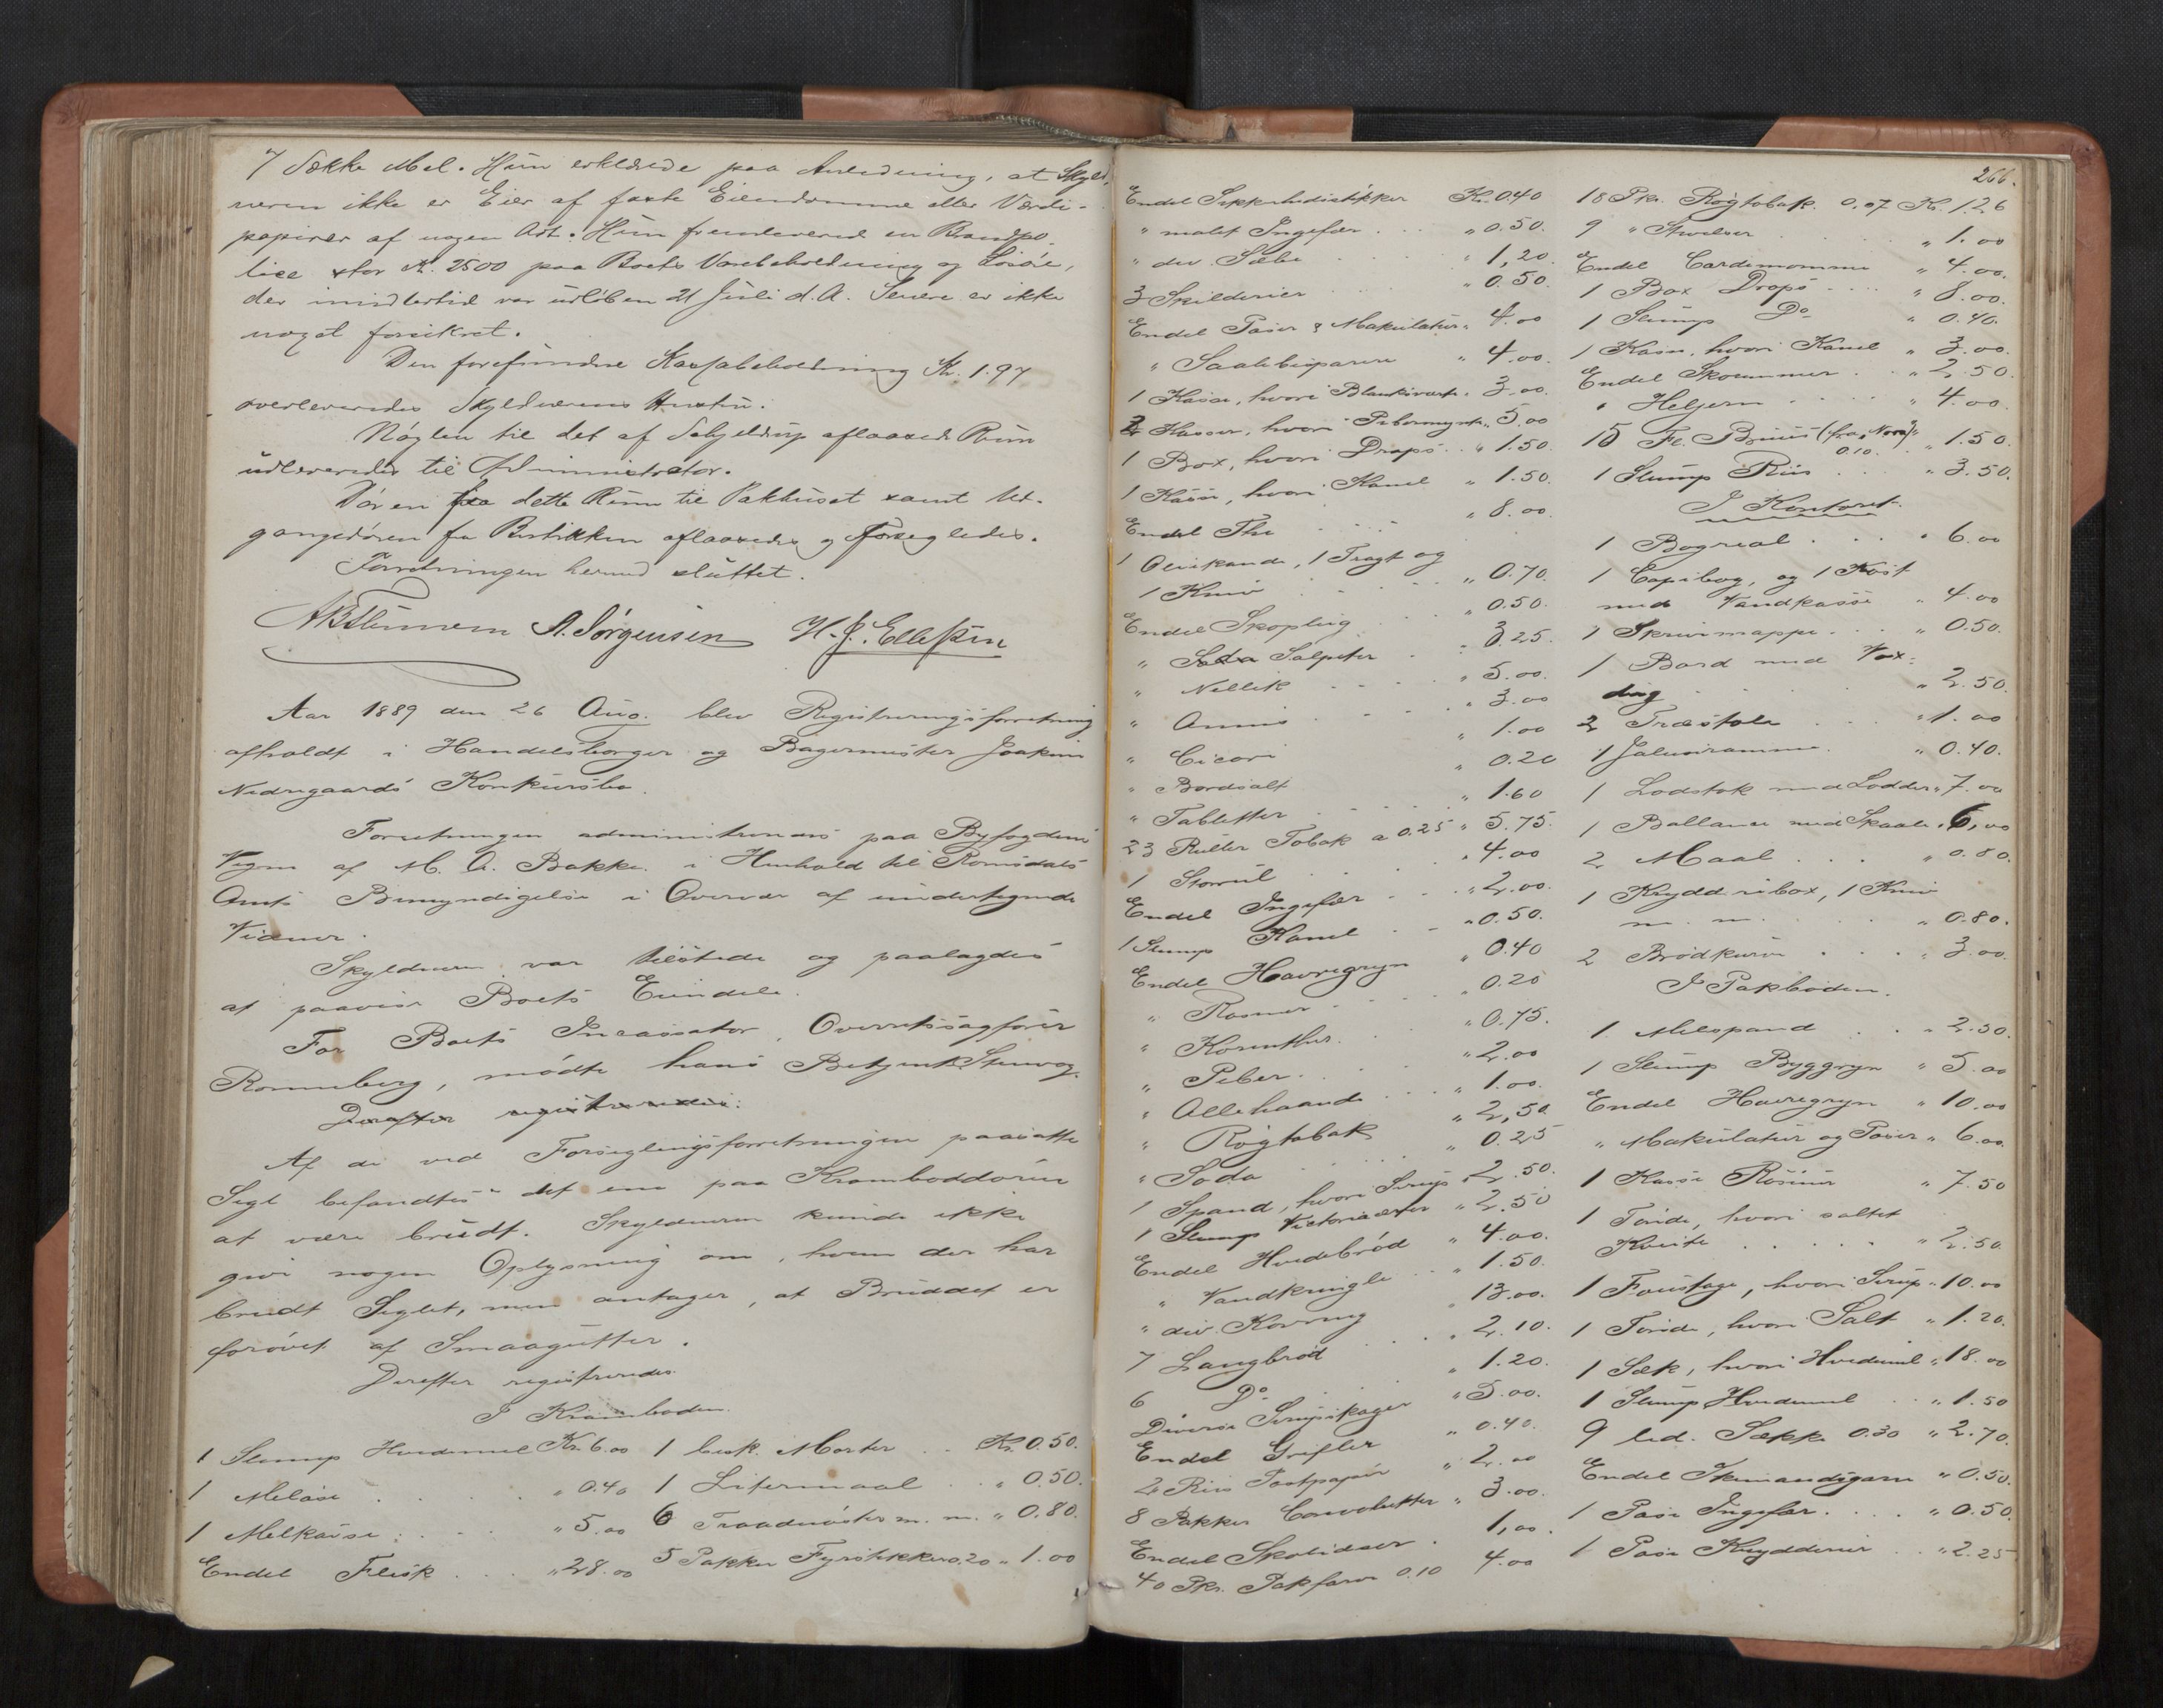 7 Sække Mel. Hun erklærede paa Anledning, at Skyld-
neren ikke er Eier af faste Eiendomme eller Værdi-
papirer af nogen Art. Hun fremleverede en Brandpo-
lice stor Kr. 2500 paa Boets Varebeholdning og Løsøre,
der imidlertid var udløben 21 Juli d. A. Senere er ikke
noget forsikret.
Den forefundne Kassabeholdning Kr. 1.97
overleveredes Skyldnerens Hustru.
Nøglen til det af Schjeldrup aflaasede Rum
udleveredes til Administrator.
Døren fra dette Rum til Pakhuset samt Ud-
gangsdøren fra Butikken aflaasedes og forsegledes.
Forretningen hermed sluttet.
A. Sørgensen H. J. Ellefsen
Aar 1889 den 26 Aug. blev Registreringsforretning
afholdt i Handelsborger og Bagermester Joakim
Nedregaards Konkursbo.
Forretningen administreres paa Byfogdens
Vegne af M. A. Bakke i Henhold til Romsdals
Amts Bemyndigelse i Overvær af undertegnede
Vidner.
Skyldneren var tilstede og paalagdes
at paavise Boets Eiendele.
For Boets Incassator, Overretssagfører
Ronneberg, mødte hans Betjent Stenvog.
Derefter registreredes:
Af de ved Forseglingsforretningen paasatte
Segl befandtes det ene paa Kramboddøren
at være brudt. Skyldneren kunde ikke
give nogen Oplysning om, hvem der har
brudt Seglet, men antager, at Bruddet er
forøvet af Smaagutter.
Derefter registreredes
I Kramboden.
1 Slump Hvedemel Kr. 6.00
1 Meløse . . . " 0.40
1 Melkasse . . . " 5.00
Endel Flesk . . . " 28.00
1 besk. Morter . . Kr. 0.50.
1 Litermaal . . " 0.50.
6 Traadnøster m. m. " 0.80.
5 Pakker Fyrstikker 0.20 " 1.00
266.
Endel Sikkerhedsstikker Kr. 0.40
" malet Ingefær . . " 0.50.
" div. Sæbe . . " 1,20.
3 Skilderier . . " 0.50.
Endel Poser & Makulatur " 4.00
" Saalebesparere " 4.00.
1 Kasse, hvori Blanksværte " 3.00.
2 Kasser, hvori Pebermynte " 5.00
1 Box, hvori Drops . . " 1.50.
1 Kasse, hvori Kanel " 1.50.
Endel The . . . " 8.00.
1 Oliekande, 1 Tragt og
1 Kniv . . . " 0.70.
Endel Skoplug . . " 0.50.
" Salpeter . . " 3.25.
" Nellik . . . " 5.00.
" Annis . . . " 3.00
" Cicori " 1.00
" Bordsalt " 0.20
" Tabletter . . " 1.60
23 Ruller Tobak a 0.25 " 5.75.
1 . . " 4.00
Endel Ingefær . . " 2.00.
1 Slump Kanel . . " 0.50.
Endel Havregryn " 0.40
" Rosiner . . " 0.20
" Korenther . . " 0.75.
" Peber . . " 2.00
" Allehaande . . " 1.00.
" Røgtobak " 2,50.
" Soda . . " 0.25
1 Spand, hvori Sirup " 2.50.
1 Slump Victoriaerter " 2.50
Endel Hvedebrød " 4.00.
" Vandkringle . . " 1.50.
" div. Kavring " 13.00.
7 Langbrød . . " 2.10.
6 Do " 1.20.
Diverse Sirupskager " 5.00.
Endel Grifler " 0.40.
2 Riis Postpapir " 2.00
8 Pakker Convolutter " 3.00.
Endel Skolidser . 1,00.
40 Pkr. Pakfarve 0.10 4.00
18 Pkr. Røgtobak 0.07 Kr. 1.26
9 " Stivelse . . " 1.00
Endel Cardemomme " 4.00.
1 Box Drops . . . " 8.00.
1 Slump Do " 0.40.
1 Kasse, hvori Kanel " 3.00.
Endel Skoremmer . . " 2.50.
" Heljern . . . " 4.00.
15 Fl. Bruus (fra Nora) 0.10 " 1.50.
1 Slump Riis . . " 3.50.
I Kontoret.
1 Bogreol . . . " 6.00
1 Copibog, og 1 Kost
med Vandkasse " 4.00
1 Skrivmappe . . . " 0.50.
1 Bord med Vox-
dug . . . " 2.50.
2 Træstole . . " 1.00
1 Jalusiramme . " 0.40.
1 Lodstok med Lodder " 7.00
1 Ballance med Skaale " 6,00
2 Maal . . . " 0.80.
1 Krydderibox, 1 Kniv
m. m. . . " 0.80.
2 Brødkurve . . . " 3.00.
I Pakboden.
1 Melspand . . " 2.50.
1 Slump Byggryn " 5.00
Endel Havregryn " 10.00
" Makulatur og Poser " 6.00.
1 Kasse Rosiner " 7.50
1 Tønde, hvori saltet
Kveite . . . " 2.50.
1 Foustage, hvori Sirup " 10.00
1 Tønde, hvori Salt " 1.20.
1 Sæk, hvori Hvedemel " 18.00
1 Slump Hvedemel . . " 1.50
9 led. Sække 0.30 " 2.70.
Endel Skimandsgarn " 0.50.
1 Pose Ingefær . . . " 0.50.
1 Pose Krydderier . . " 2.25